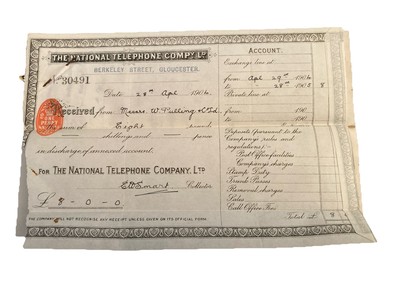 THE NATIONAL TELEPHONE COMPY LD
BERKELEY STREET, GLOUCESTER.
No 30491
Date 28th Apl 1904
Received from Messrs. W. Pulling & Co Ld
the sum of Eight pounds
shillings and — pence
in discharge of annexed account.
FOR THE NATIONAL TELEPHONE COMPANY, LTD
Collector
£ 8 - 0 - 0
THE COMPANY WILL NOT RECOGNISE ANY RECEIPT UNLESS GIVEN ON ITS OFFICIAL FORM.
ACCOUNT.
Exchange line at
from Apl 29th 1904
to " 28th 1905 8
Private line at
from 190
to 190
Deposits (pursuant to the
Company's rules and
regulations):-
Post Office facilities
Company's charges
Stamp Duty
Trunk Fees
Removal charges
Sales
Call Office Fees
Total £ 8